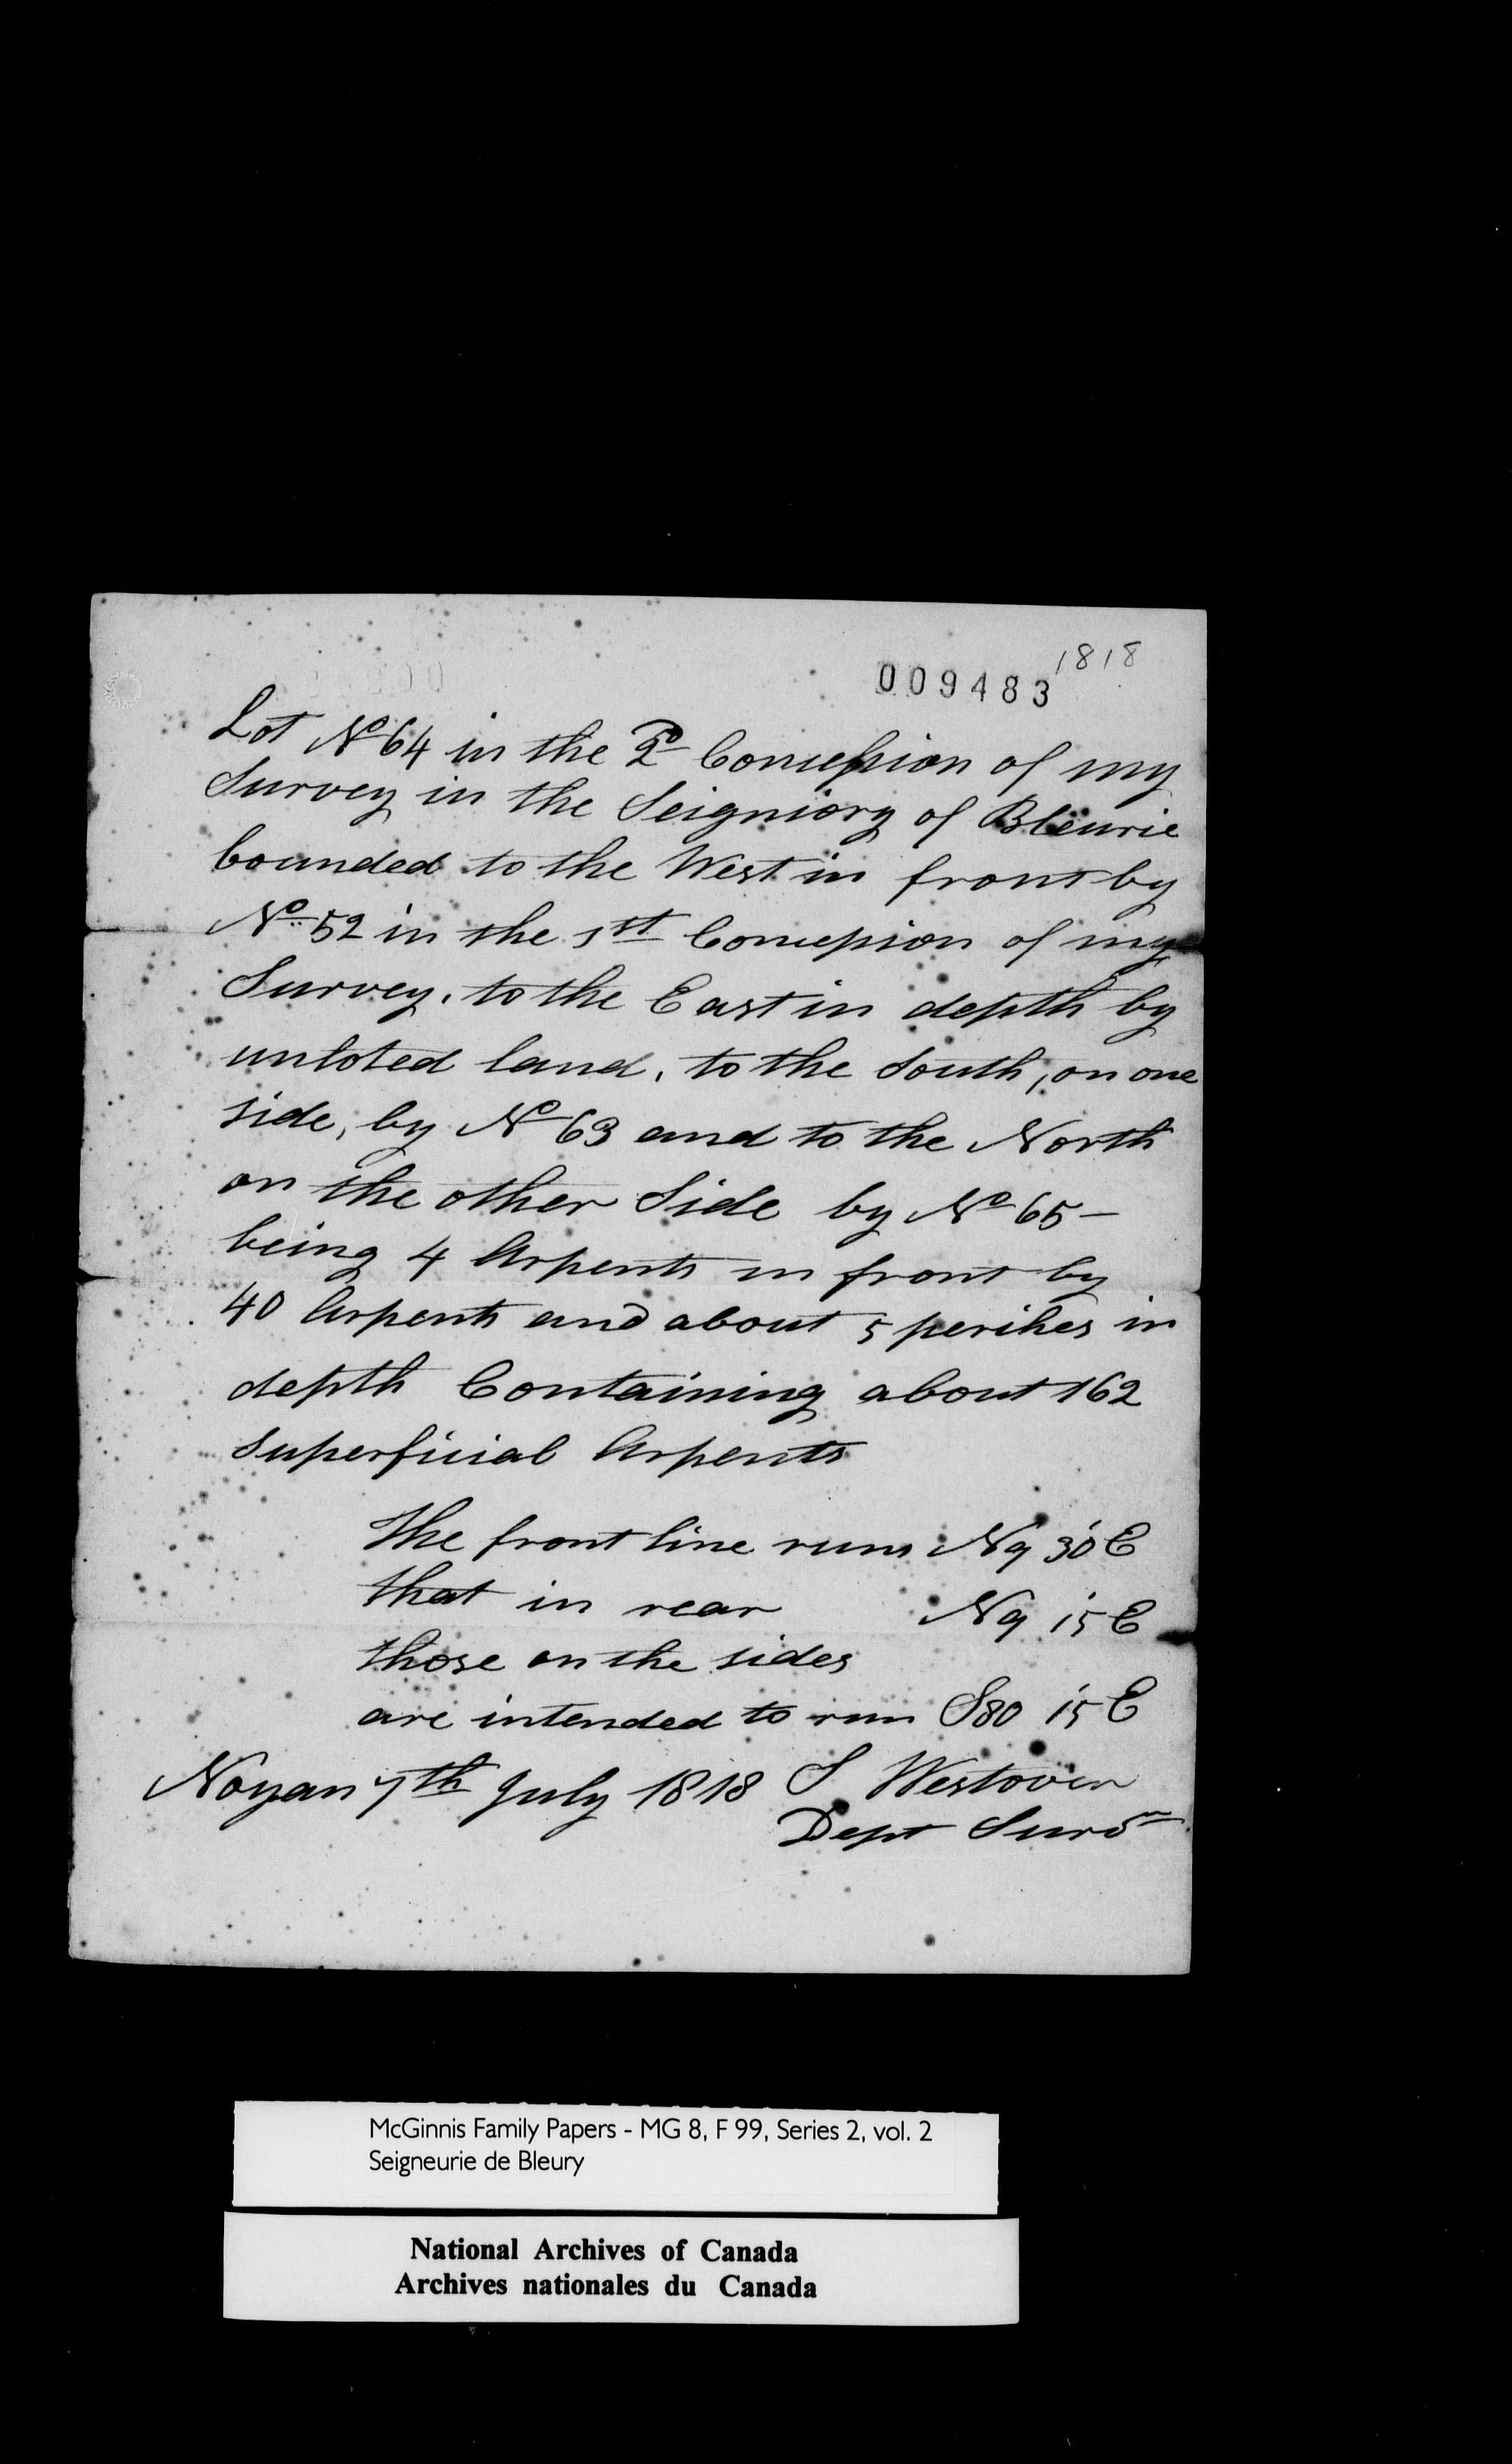 1818
009483
Lot No 64 in the 2d Concession of my
Survey in the Seigniory of Bleurie
bounded to the West in front by
No 52 in the 1st Concession of my
Survey, to the East in depth by
unloted land, to the South, on one
side, by No 63 and to the North
on the other Side by No 65 -
being 4 Arpents in front by
40 Arpents and about 5 perches in
depth Containing about 162
superficial Arpents
the front line runs N9 30' E
that in rear N9 15' E
those on the sides
are intended to run S80 15' E
Noyan 7th July 1818 S Westover
Dept Survr
McGinnis Family Papers - MG 8, F 99, Series 2, vol. 2
Seigneurie de Bleury
National Archives of Canada
Archives nationales du Canada